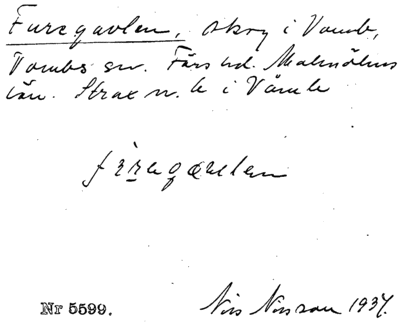 Furegavlen, skog i Vomb,
Vombs sn. Färs hd. Malmöhus
län. Strax n. b. i Vomb

Nr 5599. Nils Nilsson 1937.